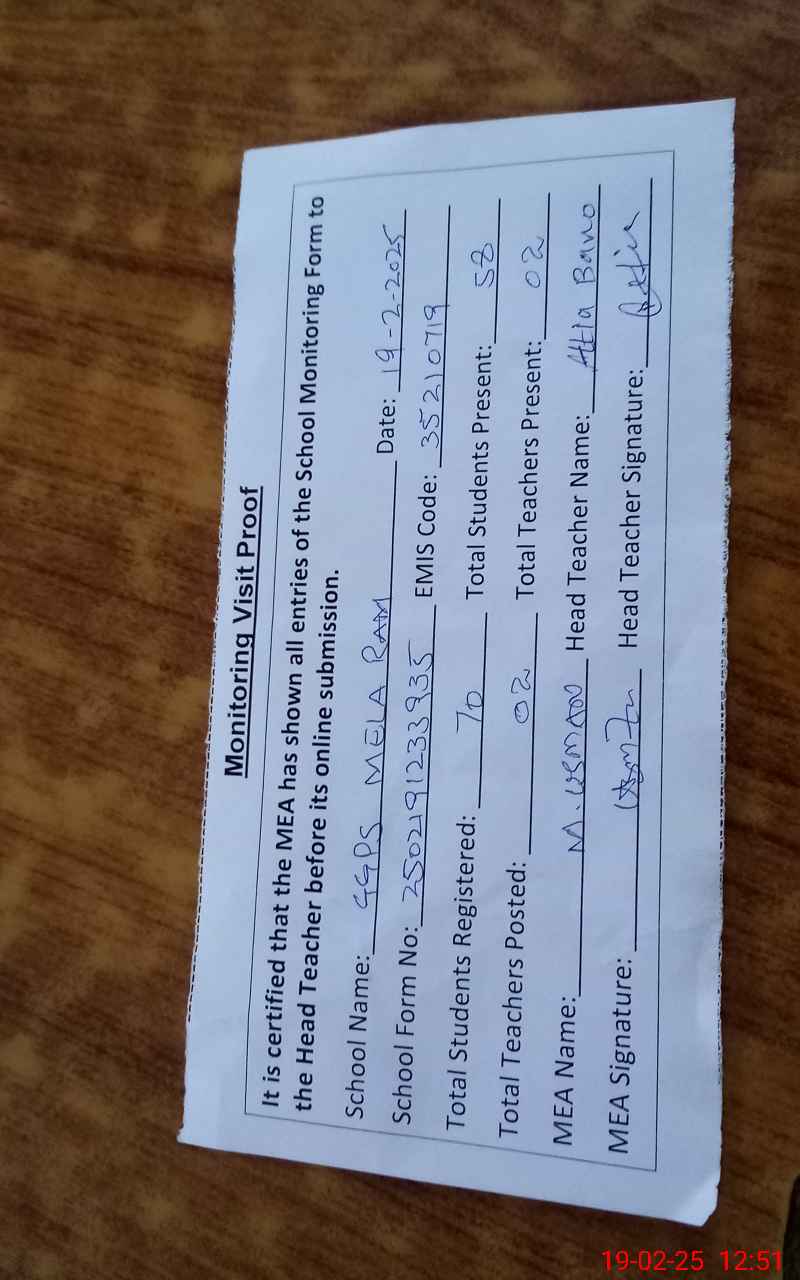 Monitoring Visit Proof
It is certified that the MEA has shown all entries of the School Monitoring Form to
the Head Teacher before its online submission.
School Name: GGPS MELA RAM Date: 19-2-2025
School Form No: 2502191233935 EMIS Code: 35210719
Total Students Registered: 70 Total Students Present: 58
Total Teachers Posted: 02 Total Teachers Present: 02
MEA Name: M. USMAN Head Teacher Name: Attia Bano
MEA Signature: Head Teacher Signature:
19-02-25 12:51